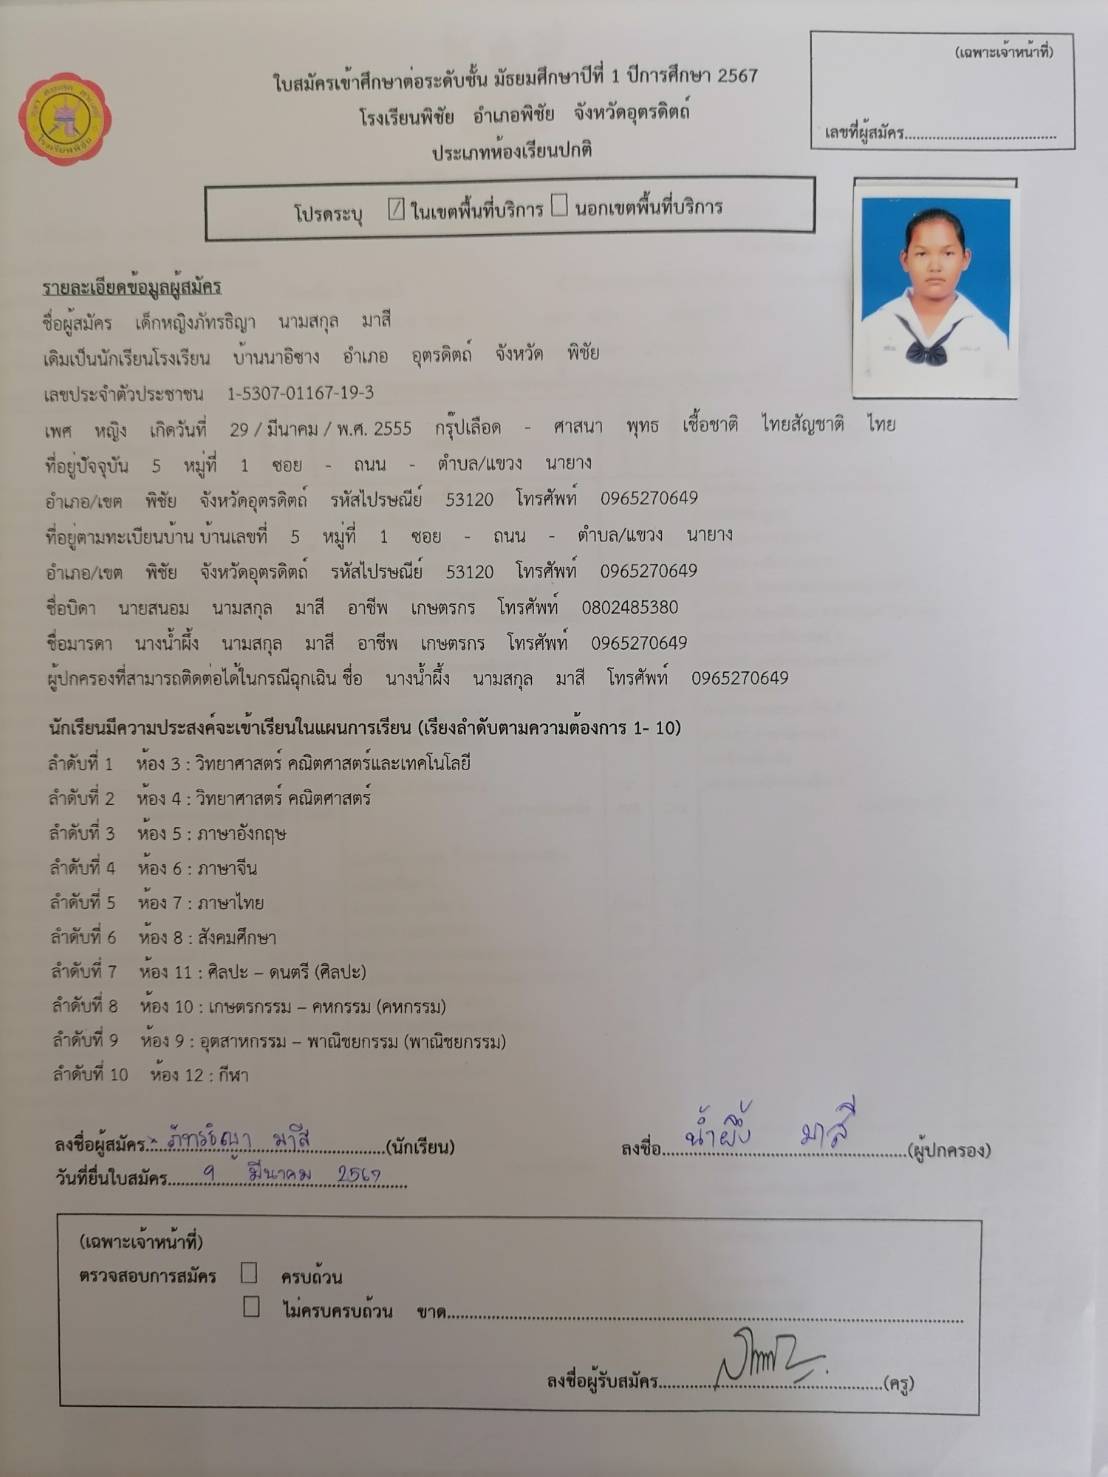 (เฉพาะเจ้าหน้าที่)
เลขที่ผู้สมัคร....................................
ใบสมัครเข้าศึกษาต่อระดับชั้น มัธยมศึกษาปีที่ 1 ปีการศึกษา 2567
โรงเรียนพิชัย อำเภอพิชัย จังหวัดอุตรดิตถ์
ประเภทห้องเรียนปกติ
โปรดระบุ ☑ ในเขตพื้นที่บริการ ☐ นอกเขตพื้นที่บริการ
รายละเอียดข้อมูลผู้สมัคร
ชื่อผู้สมัคร เด็กหญิงภัทรธิญา นามสกุล มาสี
เดิมเป็นนักเรียนโรงเรียน บ้านนาอิซาง อำเภอ อุตรดิตถ์ จังหวัด พิชัย
เลขประจำตัวประชาชน 1-5307-01167-19-3
เพศ หญิง เกิดวันที่ 29 / มีนาคม / พ.ศ. 2555 กรุ๊ปเลือด - ศาสนา พุทธ เชื้อชาติ ไทยสัญชาติ ไทย
ที่อยู่ปัจจุบัน 5 หมู่ที่ 1 ซอย - ถนน - ตำบล/แขวง นายาง
อำเภอ/เขต พิชัย จังหวัดอุตรดิตถ์ รหัสไปรษณีย์ 53120 โทรศัพท์ 0965270649
ที่อยู่ตามทะเบียนบ้าน บ้านเลขที่ 5 หมู่ที่ 1 ซอย - ถนน - ตำบล/แขวง นายาง
อำเภอ/เขต พิชัย จังหวัดอุตรดิตถ์ รหัสไปรษณีย์ 53120 โทรศัพท์ 0965270649
ชื่อบิดา นายสนอม นามสกุล มาสี อาชีพ เกษตรกร โทรศัพท์ 0802485380
ชื่อมารดา นางน้ำผึ้ง นามสกุล มาสี อาชีพ เกษตรกร โทรศัพท์ 0965270649
ผู้ปกครองที่สามารถติดต่อได้ในกรณีฉุกเฉิน ชื่อ นางน้ำผึ้ง นามสกุล มาสี โทรศัพท์ 0965270649
นักเรียนมีความประสงค์จะเข้าเรียนในแผนการเรียน (เรียงลำดับตามความต้องการ 1- 10)
ลำดับที่ 1 ห้อง 3 : วิทยาศาสตร์ คณิตศาสตร์และเทคโนโลยี
ลำดับที่ 2 ห้อง 4 : วิทยาศาสตร์ คณิตศาสตร์
ลำดับที่ 3 ห้อง 5 : ภาษาอังกฤษ
ลำดับที่ 4 ห้อง 6 : ภาษาจีน
ลำดับที่ 5 ห้อง 7 : ภาษาไทย
ลำดับที่ 6 ห้อง 8 : สังคมศึกษา
ลำดับที่ 7 ห้อง 11 : ศิลปะ – ดนตรี (ศิลปะ)
ลำดับที่ 8 ห้อง 10 : เกษตรกรรม – คหกรรม (คหกรรม)
ลำดับที่ 9 ห้อง 9 : อุตสาหกรรม – พาณิชยกรรม (พาณิชยกรรม)
ลำดับที่ 10 ห้อง 12 : กีฬา
ลงชื่อผู้สมัคร ภัทรธิญา มาสี (นักเรียน) ลงชื่อ น้ำผึ้ง มาสี (ผู้ปกครอง)
วันที่ยื่นใบสมัคร 9 มีนาคม 2567
(เฉพาะเจ้าหน้าที่)
ตรวจสอบการสมัคร ☐ ครบถ้วน
☐ ไม่ครบครบถ้วน ขาด....................................
ลงชื่อผู้รับสมัคร....................................(ครู)